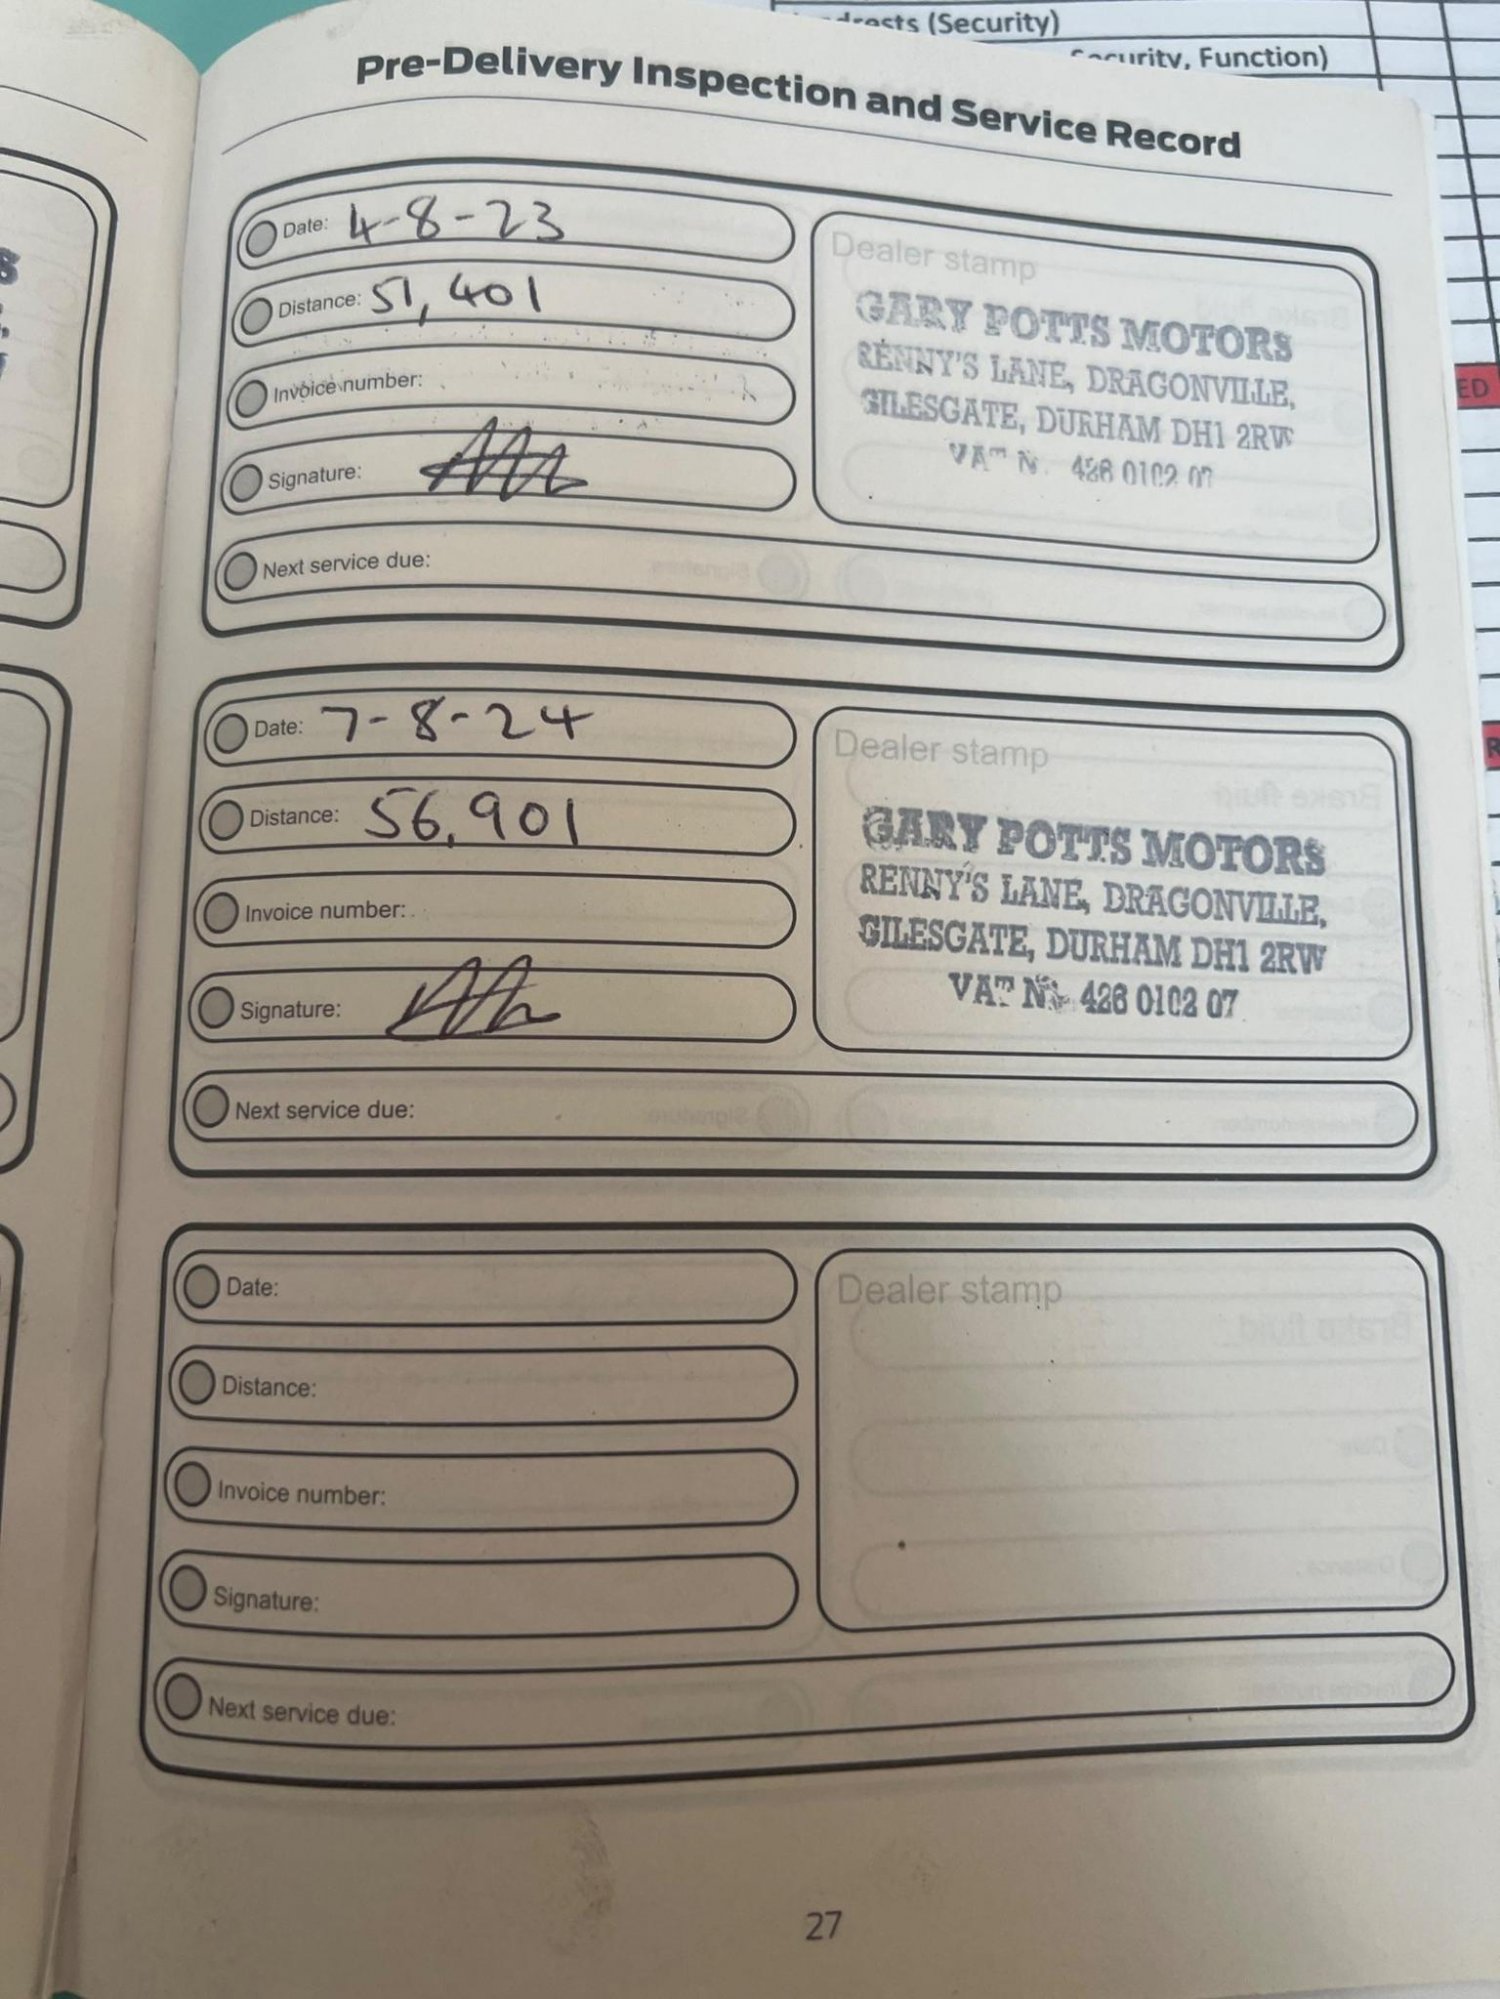 (Security)
Security, Function)
Pre-Delivery Inspection and Service Record
Date: 4-8-23
Distance: 51,401
Invoice number:
Signature:
Next service due:
Dealer stamp
GARY POTTS MOTORS
RENNY'S LANE, DRAGONVILLE,
GILESGATE, DURHAM DH1 2RW
VAT N. 426 0102 07
Date: 7-8-24
Distance: 56,901
Invoice number:
Signature:
Next service due:
Dealer stamp
GARY POTTS MOTORS
RENNY'S LANE, DRAGONVILLE,
GILESGATE, DURHAM DH1 2RW
VAT No 426 0102 07
Date:
Distance:
Invoice number:
Signature:
Next service due:
Dealer stamp
27
ED
R